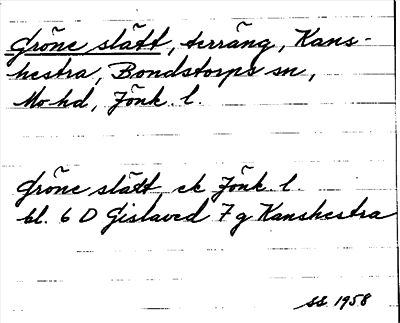 Gröne slätt, terräng, Kans-
hestra, Bondstorps sn,
Mo hd, Jönk. l.
Gröne slätt, ek Jönk. l.
bl. 6 D Gislaved 7 g Kanshestra
SS 1958